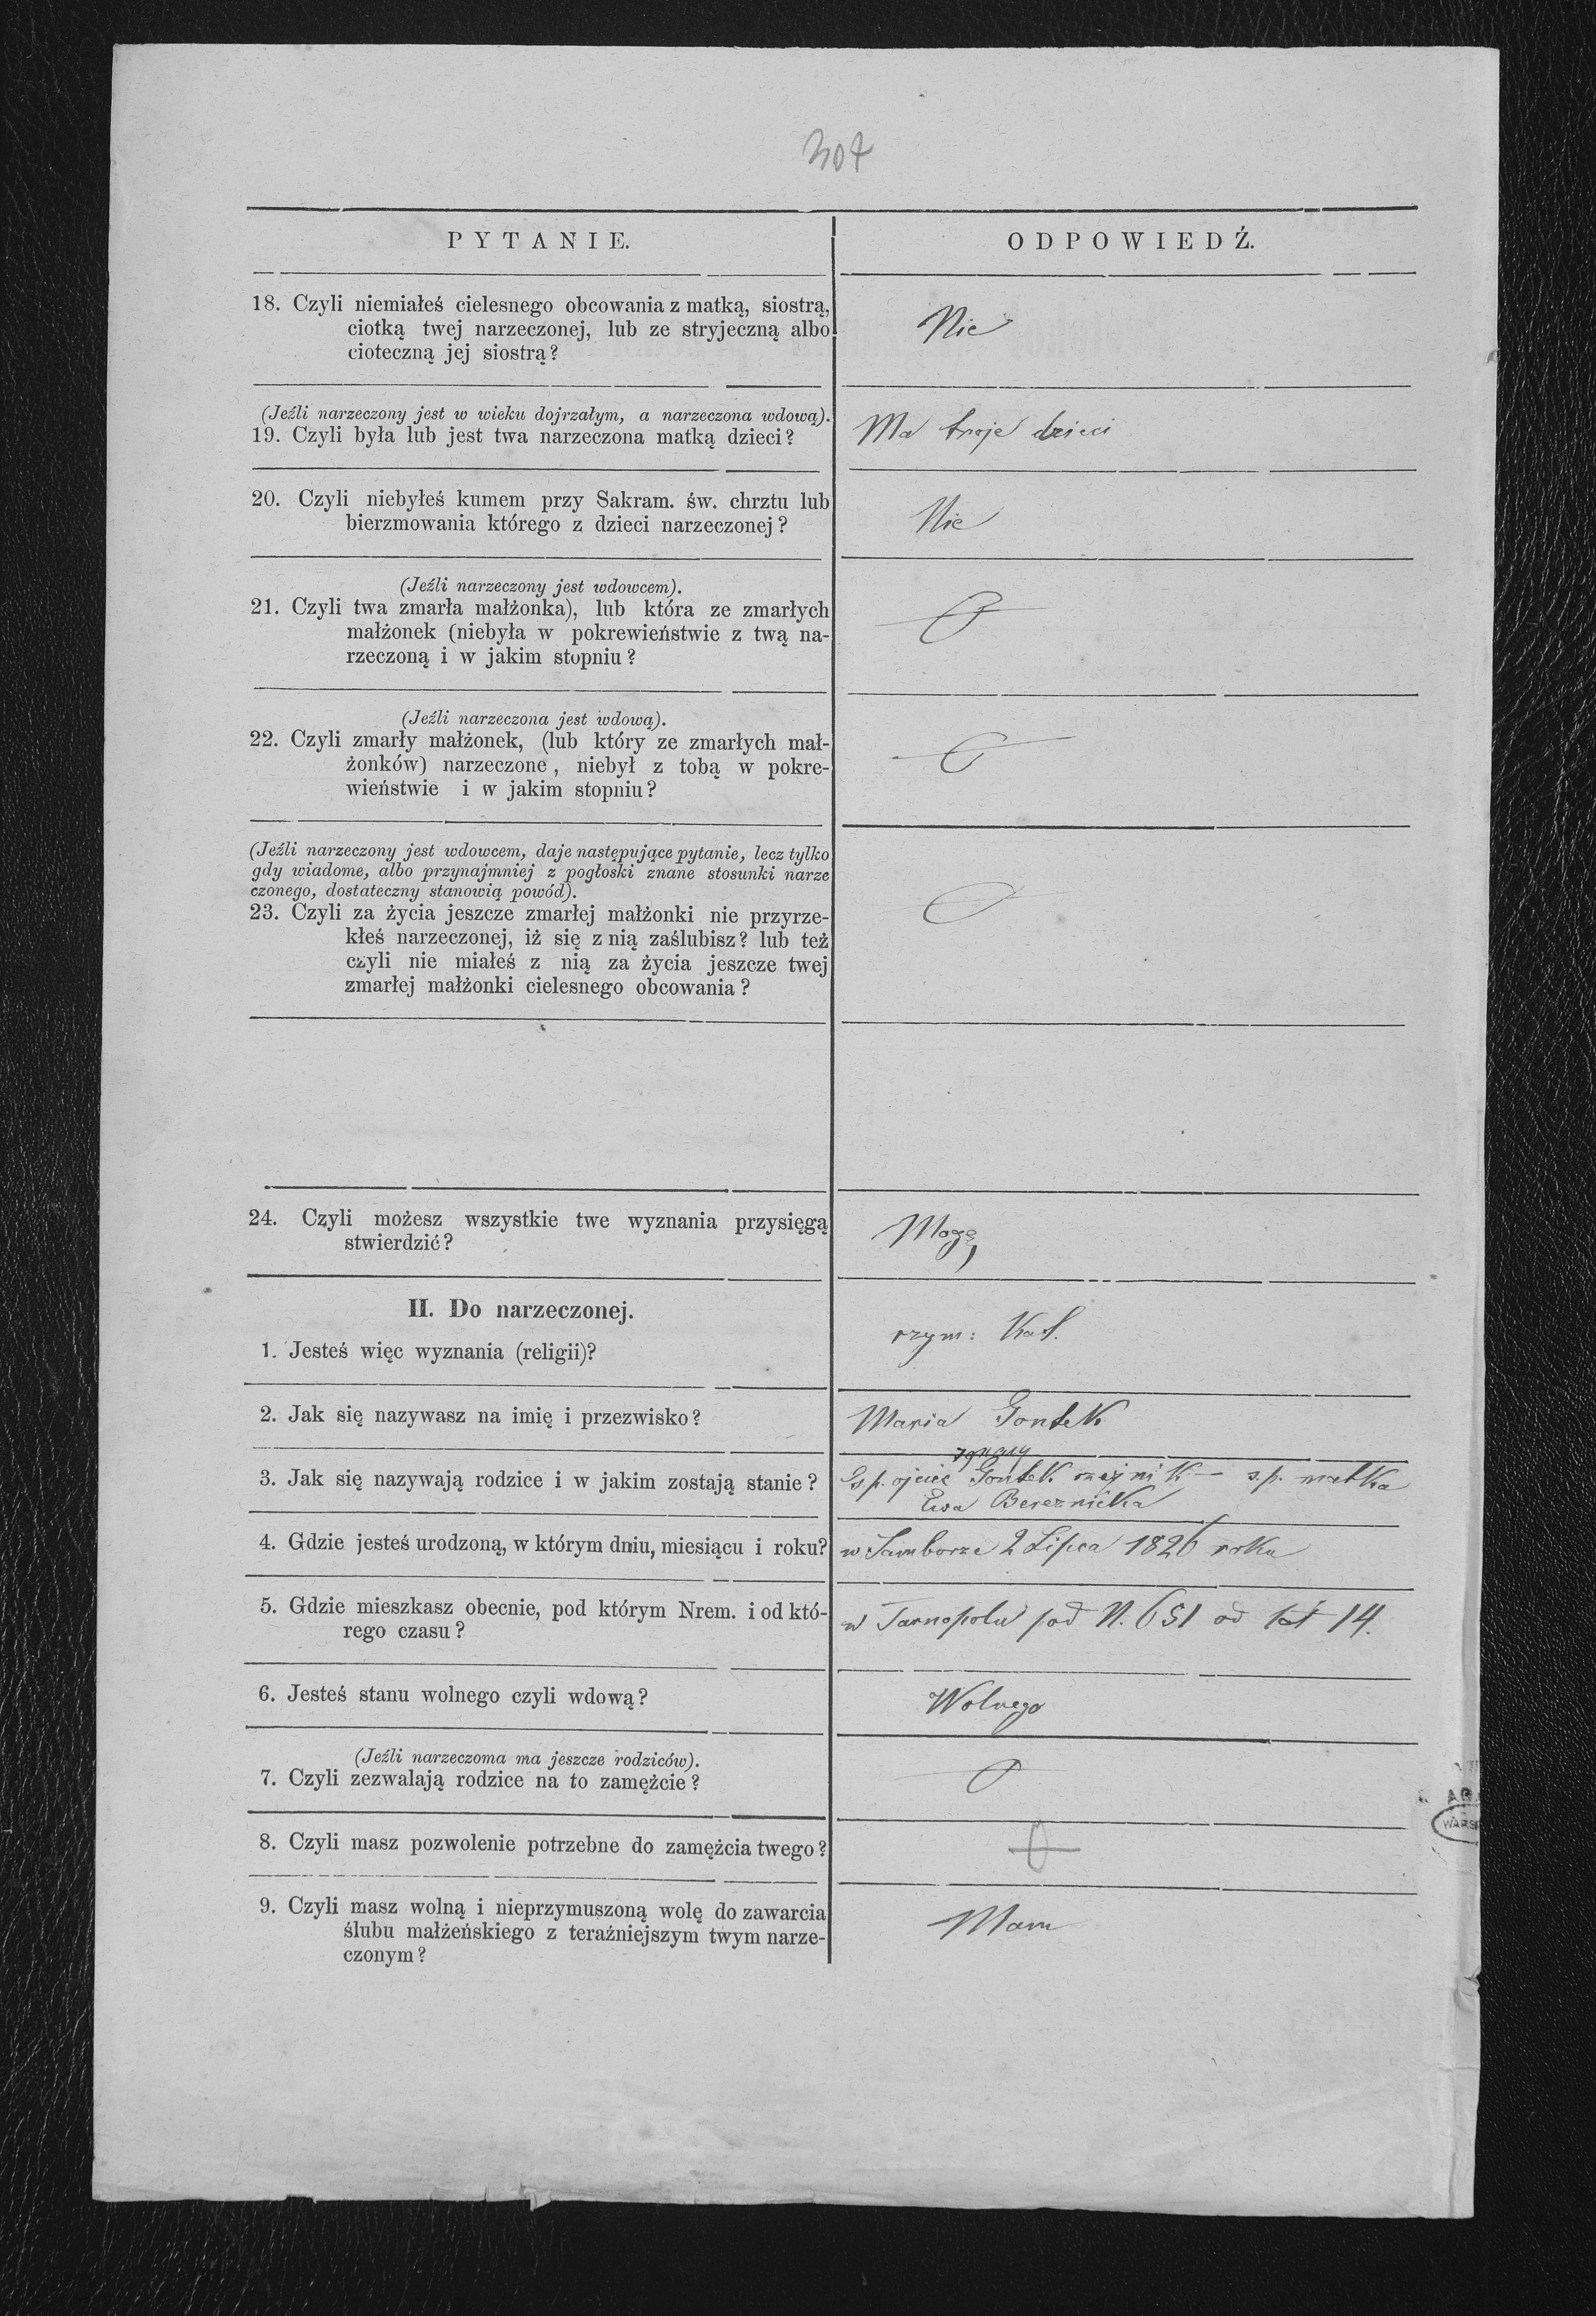 307
PYTANIE.
ODPOWIEDŹ.
18. Czyli niemiałeś cielesnego obcowania z matką, siostrą,
ciotką twej narzeczonej, lub ze stryjeczną albo
cioteczną jej siostrą?
Nie
(Jeźli narzeczony jest w wieku dojrzałym, a narzeczona wdową).
19. Czyli była lub jest twa narzeczona matką dzieci?
Ma troje dzieci
20. Czyli niebyłeś kumem przy Sakram. św. chrztu lub
bierzmowania którego z dzieci narzeczonej?
Nie
(Jeźli narzeczony jest wdowcem).
21. Czyli twa zmarła małżonka), lub która ze zmarłych
małżonek (niebyła w pokrewieństwie z twą na-
rzeczoną i w jakim stopniu?
(Jeźli narzeczona jest wdową).
22. Czyli zmarły małżonek, (lub który ze zmarłych mał-
żonków) narzeczone, niebył z tobą w pokre-
wieństwie i w jakim stopniu?
(Jeźli narzeczony jest wdowcem, daje następujące pytanie, lecz tylko
gdy wiadome, albo przynajmniej z pogłoski znane stosunki narze
czonego, dostateczny stanowią powód).
23. Czyli za życia jeszcze zmarłej małżonki nie przyrze-
kłeś narzeczonej, iż się z nią zaślubisz? lub też
czyli nie miałeś z nią za życia jeszcze twej
zmarłej małżonki cielesnego obcowania?
24. Czyli możesz wszystkie twe wyznania przysięgą
stwierdzić?
Mogę
II. Do narzeczonej.
1. Jesteś więc wyznania (religii)?
rzym: Kat.
2. Jak się nazywasz na imię i przezwisko?
Maria Gontek
3. Jak się nazywają rodzice i w jakim zostają stanie?
Ignacy
ś.p. ojciec Gontek – s.p. matka
Ewa Bereznicka
4. Gdzie jesteś urodzoną, w którym dniu, miesiącu i roku?
w Samborze 2 Lipca 1826 roku
5. Gdzie mieszkasz obecnie, pod którym Nrem. i od któ-
rego czasu?
w Tarnopolu pod N. 651 od lat 14.
6. Jesteś stanu wolnego czyli wdową?
Wolnego
(Jeźli narzeczoma ma jeszcze rodziców).
7. Czyli zezwalają rodzice na to zamężcie?
8. Czyli masz pozwolenie potrzebne do zamężcia twego?
9. Czyli masz wolną i nieprzymuszoną wolę do zawarcia
ślubu małżeńskiego z teraźniejszym twym narze-
czonym?
Mam